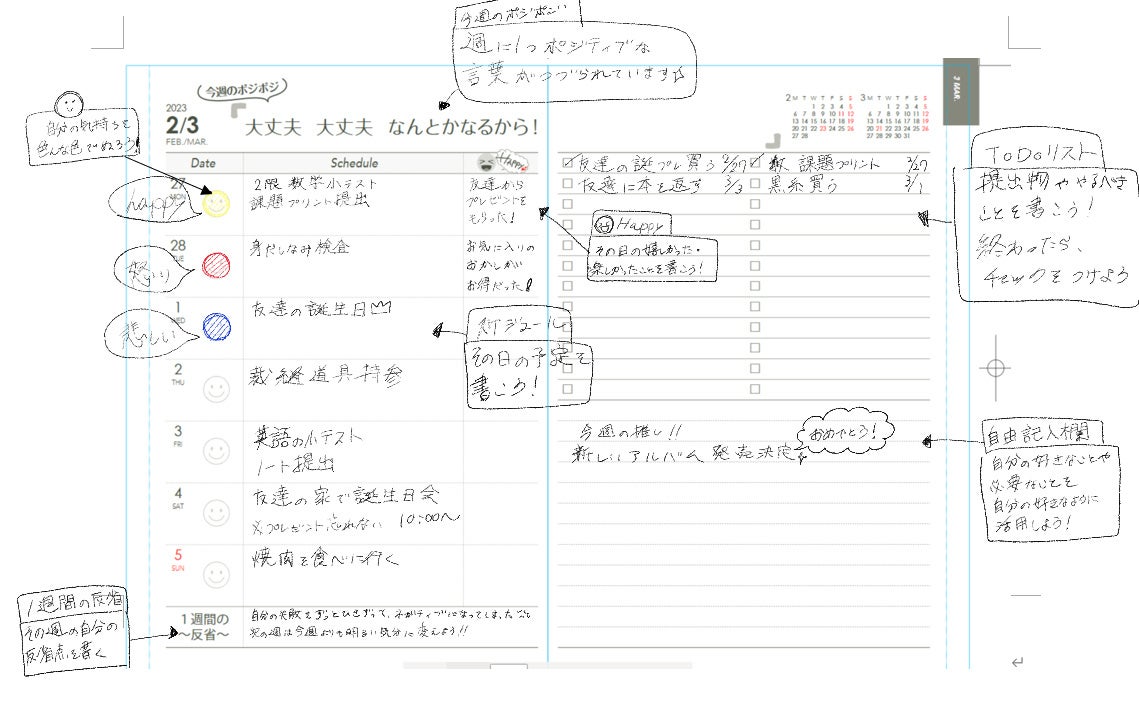 今週のポジポジ
週に1つポジティブな
言葉がつづられています☆
今週のポジポジ
2023
2/3
FEB./MAR.
大丈夫 大丈夫 なんとかなるから!
自分の気持ちを
色んな色でぬろう!
Date
Schedule
HAPPY
27
MON
happy
2限 数学小テスト
課題プリント提出
友達から
プレゼントを
もらった!
28
TUE
怒り
身だしなみ検査
お気に入りの
おかしがい
お得だった!
1
WED
悲しい
友達の誕生日
2
THU
裁縫道具持参
3
FRI
英語の小テスト
ノート提出
4
SAT
友達の家で誕生日会
※プレゼント忘れない 10:00〜
5
SUN
焼肉を食べに行く
1週間の
〜反省〜
自分の失敗をずっとひきずって、ネガティブになってしまったこと
次の週は今週よりも明るい気分に変えよう!!
スケジュール
その日の予定を
書こう!
1週間の反省
その週の自分の
反省点を書く
2 M T W T F S S
1 2 3 4 5
6 7 8 9 10 11 12
13 14 15 16 17 18 19
20 21 22 23 24 25 26
27 28
3 M T W T F S S
1 2 3 4 5
6 7 8 9 10 11 12
13 14 15 16 17 18 19
20 21 22 23 24 25 26
27 28 29 30 31
3 MAR.
友達の誕プレ買う 2/27
数 課題プリント 2/27
友達に本を返す 3/3
黒糸買う 3/1
Happy
その日の嬉しかった・
楽しかったことを書こう!
ToDoリスト
提出物ややるべき
ことを書こう!
終わったら、
チェックをつけよう
今週の推し!!
新しいアルバム 発売決定
おめでとう!
自由記入欄
自分の好きなことや
必要なことを
自分の好きなように
活用しよう!